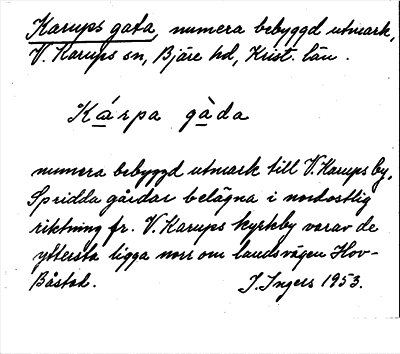 Karups gata, numera bebyggd utmark,
V. Karups sn, Bjäre hd, Krist. län.
Ká̲rpa gà̲da
numera bebyggd utmark till V. Karups by.
Spridda gårdar belägna i nordostlig
riktning fr. V. Karups kyrkby varav de
yttersta ligga norr om landsvägen Hov-
Båstad. I. Ingers 1953.